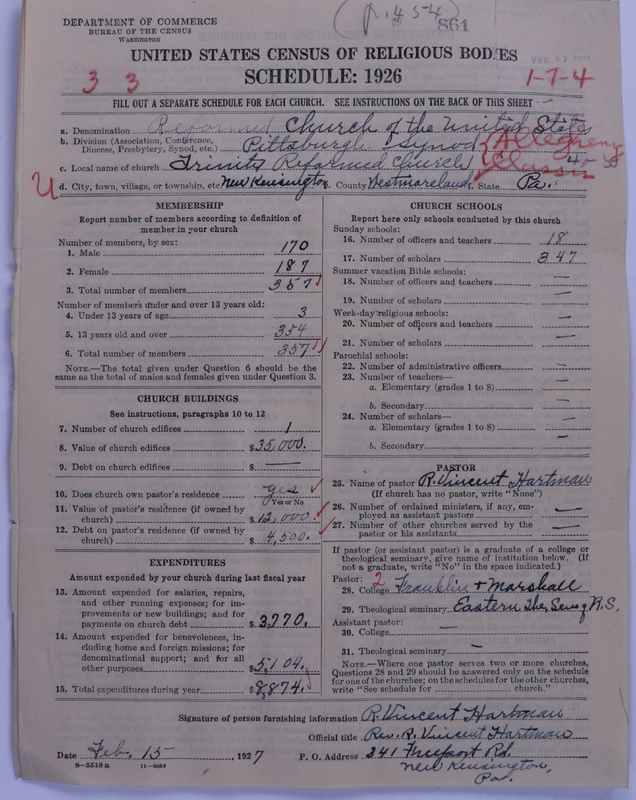 (p. 454)
861
DEPARTMENT OF COMMERCE
BUREAU OF THE CENSUS
WASHINGTON
UNITED STATES CENSUS OF RELIGIOUS BODIES
3 3
SCHEDULE: 1926
1-7-4
FILL OUT A SEPARATE SCHEDULE FOR EACH CHURCH. SEE INSTRUCTIONS ON THE BACK OF THIS SHEET
a. Denomination Reformed Church of the United States
b. Division (Association, Conference, Diocese, Presbytery, Synod, etc.) Pittsburgh Synod Allegheny Classis
c. Local name of church Trinity Reformed Church
U
d. City, town, village, or township, etc. New Kensington County Westmoreland, State Pa.
MEMBERSHIP
Report number of members according to definition of
member in your church
Number of members, by sex:
1. Male 170
2. Female 187
3. Total number of members 357
Number of members under and over 13 years old:
4. Under 13 years of age 3
5. 13 years old and over 354
6. Total number of members 357
NOTE.—The total given under Question 6 should be
same as the total of males and females given under Question 3.
CHURCH BUILDINGS
See instructions, paragraphs 10 to 12
7. Number of church edifices 1
8. Value of church edifices $35,000.
9. Debt on church edifices $ —
10. Does church own pastor's residence yes
Yes or No
11. Value of pastor's residence (if owned by
church) $12,000.
12. Debt on pastor's residence (if owned by
church) $4,500.
EXPENDITURES
Amount expended by your church during last fiscal year
13. Amount expended for salaries, repairs,
and other running expenses; for im-
provements or new buildings; and for
payments on church debt $3,770.
14. Amount expended for benevolences,
including home and foreign missions; for
denominational support; and for all
other purposes $5,104.
15. Total expenditures during year $8,874.
CHURCH SCHOOLS
Report here only schools conducted by this church
Sunday schools:
16. Number of officers and teachers 18
17. Number of scholars 347
Summer vacation Bible schools:
18. Number of officers and teachers —
19. Number of scholars —
Week-day religious schools:
20. Number of officers and teachers —
21. Number of scholars —
Parochial schools:
22. Number of administrative officers —
23. Number of teachers—
a. Elementary (grades 1 to 8) —
b. Secondary —
24. Number of scholars—
a. Elementary (grades 1 to 8) —
b. Secondary —
PASTOR
25. Name of pastor R. Vincent Hartman
(If church has no pastor, write "None")
26. Number of ordained ministers, if any, em-
ployed as assistant pastors —
27. Number of other churches served by the
pastor or his assistants —
If pastor (or assistant pastor) is a graduate of a college or
theological seminary, give name of institution below. (If
not a graduate, write "No" in the space indicated.)
Pastor: 2
28. College Franklin + Marshall
29. Theological seminary Eastern The. Sem of R.S.
Assistant pastor:
30. College —
31. Theological seminary —
NOTE.—Where one pastor serves two or more churches,
Questions 28 and 29 should be answered only on the schedule
for one of the churches; on the schedules for the other churches,
write "See schedule for church."
Signature of person furnishing information R. Vincent Hartman
Official title Rev. R. Vincent Hartman
Date Feb. 15, 1927 P. O. Address 341 Freeport Rd.
8—5518a 11—9054
New Kensington,
Pa.